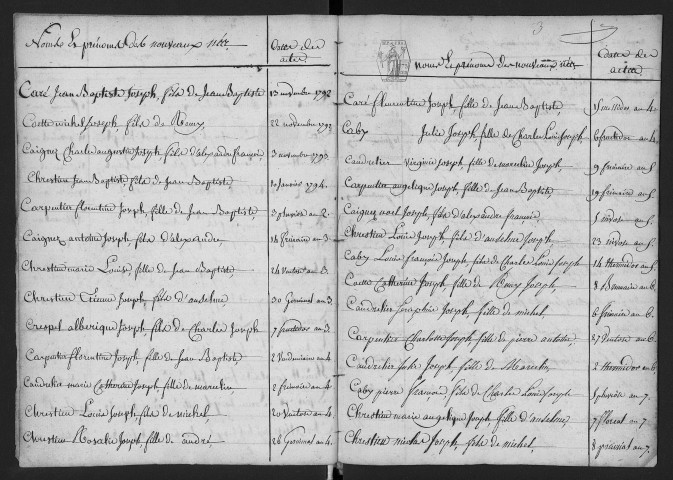 Noms et prénoms des nouveaux nées
Dattes des
actes
Caré Jean Baptiste Joseph, fils de Jean Baptiste 13 novembre 1792
Cotte michel Joseph, fils de Remy, 22 novembre 1793
Caignez Charles augustin Joseph, fils d'alexandre françois, 3 novembre 1793
Chrestien Jean Baptiste, fils de Jean Baptiste, 10 Janvier 1794
Carpentier florentine Joseph, fille de Jean Baptiste an 2
Caignez antoine Joseph, fils d'alexandre 14 frimaire an 3
Chrestien marie Louise, fille de Jean Baptiste, 24 Ventose an 3
Chrestien Etienne Joseph, fils d'anselme 30 Germinal an 3
Crespel alberique Joseph, fils de Charles Joseph 7 an 3
Carpentier florentine Joseph, fille de Jean Baptiste 2 Vendemiaire an 4
Caudrelier marie Catherine Joseph, fille de marcelin 2 frimaire an 4
Chrestien Louis Joseph, fils de michel, 20 Ventose an 4
Chrestien Rosalie Joseph, fille de andré 26 Germinal an 4
3
noms et prénoms des nouveaux nées
Dattes des
actes
Caré florentine Joseph, fille de Jean Baptiste messidor an 4
Caby Julie Joseph, fille de Charles Louis Joseph 6 fructidor an 4
Caudrelier Virginie Joseph, fille de marcelin Joseph, 9 frimaire an 5
Carpentier angelique Joseph, fille de Jean Baptiste 19 frimaire an 5
Caignez noel Joseph, fils d'alexandre françois, 5 nivose an 5
Chrestien Louis Joseph, fils d'anselme Joseph, 23 nivose an 5
Caby Louis françois Joseph, fils de Charles Louis Joseph 14 thermidor an 5
Cotte Catherine Joseph, fille de Remy Joseph 8 Brumaire an 6
Caudrelier Seraphine Joseph, fille de michel, 6 frimaire an 6
Carpentier Charlotte Joseph, fille de pierre antoine, 27 Ventose an 6
Caudrelier Joseph, fille de Marcelin, 2 thermidor an 6
Caby pierre, fils de Charles Louis Joseph 1 pluviose an 7
Chrestien marie angelique Joseph, fille d'anselme, 7 floreal an 7
Chrestien nicolas Joseph, fils de michel, 8 prairial an 7